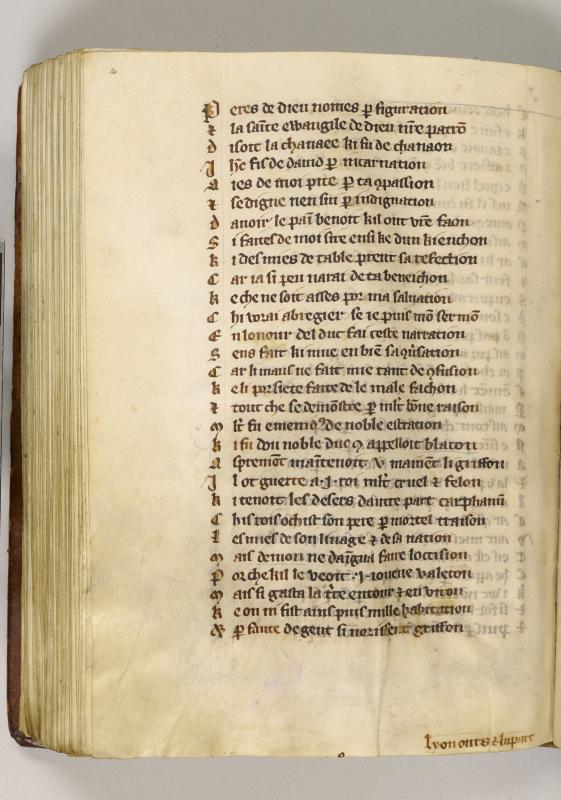 P eres de dieu nomes ꝑ figuration
⁊ la sainte ewangile de dieu nr̄e patrō
D isoit la chanaee ki fu de chanaon
J hē fis de dauid ꝑ incarnation
A ies de moi pite ꝑ ta ꝯpassion
⁊ se digne n'en sui ꝑ indignation
D auoir le pain benoit kil ont vr̄e faon
S i faites de moi sire ensi ke dun kienchon
K i des mies de table prent sa refection
C ar ia si peu narai de ta beneichon
K e che ne soit asses por ma saluation
C hi vorai abregier se ie puis mō sermō
E n lonour del duc fai ceste narration
S ens fait ki mue en biē
C ar li maus ne fait mie tant de ꝯfusion
K e li porsiete faite de le male fachon
⁊ tout che se demōstre ꝑ mlt' bōne raison
M lt' fu de noble estration
K i fu dou noble duc ꝯ appelloit blaton
A spremōt maītenoit v mainēt li griffon
J l ot guerre a .i. roi mlt' cruel ⁊ felon
K i tenoit les desers dautre part
C his rois ochist son pere ꝑ mortel traison
L es mies de son linage ⁊ de sa nation
M ais demon ne daigna faire loccision
P or che kil le veoit .i. iouene valeton
M ais si gasta la tr̄re entour ⁊ en viron
K e on ni fist ains puis mille habitation
⁊ ꝑ faute de gent si norissent griffon
lyon ours ⁊ lupart